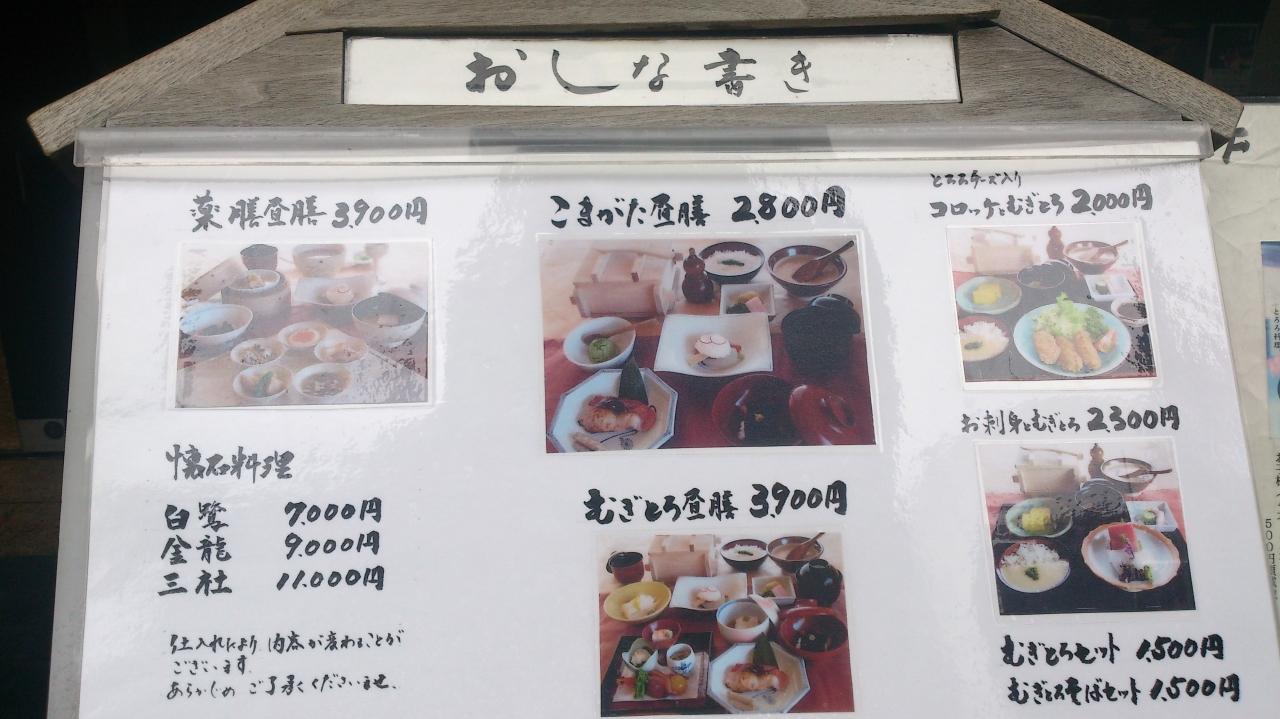 おしな書き
薬膳昼膳 3,900円
懐石料理
白鷺 7,000円
金龍 9,000円
三社 11,000円
仕入れにより 内容が変わることが
ございます。
あらかじめ ご了承くださいませ。
こまがた昼膳 2,800円
むぎとろ昼膳 3,900円
とろろチーズ入り
コロッケとむぎとろ 2,000円
お刺身とむぎとろ 2,300円
むぎとろセット 1,500円
むぎとろそばセット 1,500円